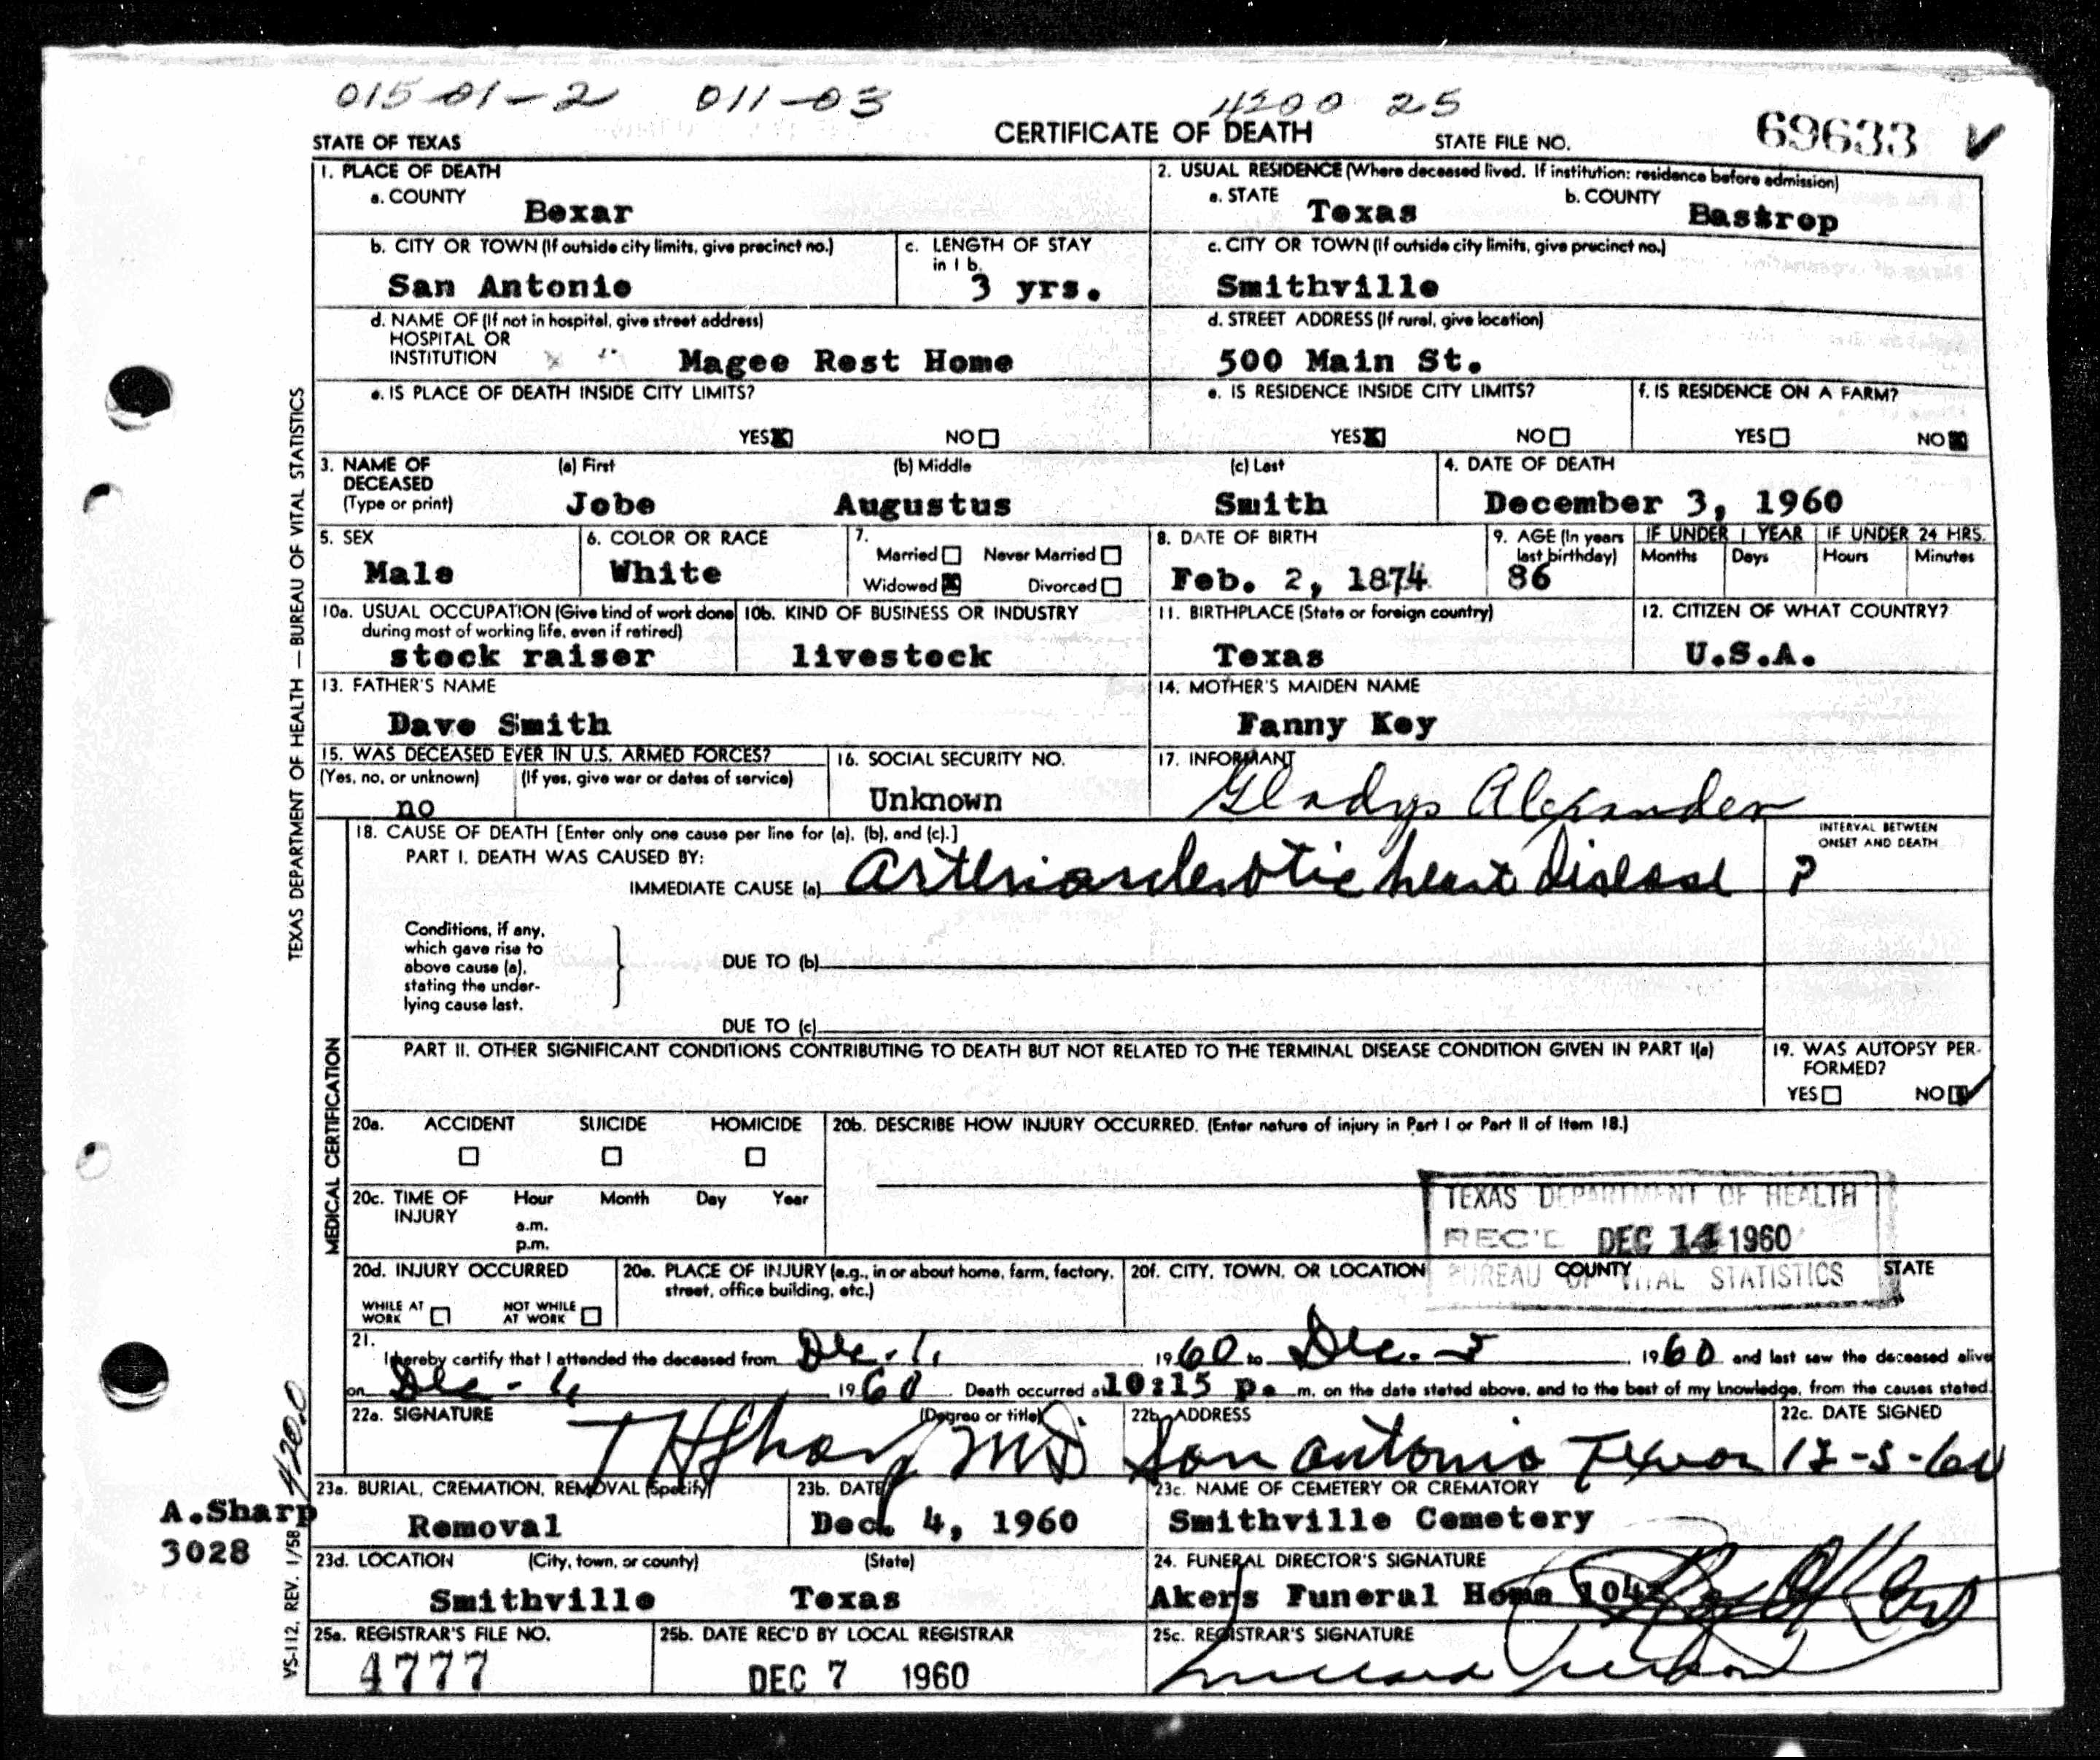 015-01-2 011-03 4200 25
STATE OF TEXAS CERTIFICATE OF DEATH STATE FILE NO. 69633 ✓
1. PLACE OF DEATH
a. COUNTY Bexar
2. USUAL RESIDENCE (Where deceased lived. If institution: residence before admission)
a. STATE Texas b. COUNTY Bastrop
b. CITY OR TOWN (If outside city limits, give precinct no.)
San Antonio
c. LENGTH OF STAY
in 1 b.
3 yrs.
c. CITY OR TOWN (If outside city limits, give precinct no.)
Smithville
d. NAME OF (If not in hospital, give street address)
HOSPITAL OR
INSTITUTION Magee Rest Home
d. STREET ADDRESS (If rural, give location)
500 Main St.
e. IS PLACE OF DEATH INSIDE CITY LIMITS?
YES☒ NO☐
e. IS RESIDENCE INSIDE CITY LIMITS?
YES☒ NO☐
f. IS RESIDENCE ON A FARM?
YES☐ NO☒
3. NAME OF
DECEASED
(Type or print)
(a) First (b) Middle (c) Last
Jobe Augustus Smith
4. DATE OF DEATH
December 3, 1960
5. SEX
Male
6. COLOR OR RACE
White
7.
Married ☐ Never Married ☐
Widowed ☒ Divorced ☐
8. DATE OF BIRTH
Feb. 2, 1874
9. AGE (In years
last birthday)
86
IF UNDER 1 YEAR IF UNDER 24 HRS.
Months Days Hours Minutes
10a. USUAL OCCUPATION (Give kind of work done
during most of working life, even if retired)
stock raiser
10b. KIND OF BUSINESS OR INDUSTRY
livestock
11. BIRTHPLACE (State or foreign country)
Texas
12. CITIZEN OF WHAT COUNTRY?
U.S.A.
13. FATHER'S NAME
Dave Smith
14. MOTHER'S MAIDEN NAME
Fanny Key
15. WAS DECEASED EVER IN U.S. ARMED FORCES?
(Yes, no, or unknown) (If yes, give war or dates of service)
no
16. SOCIAL SECURITY NO.
Unknown
17. INFORMANT
Gladys Alexander
18. CAUSE OF DEATH [Enter only one cause per line for (a), (b), and (c).]
PART I. DEATH WAS CAUSED BY:
IMMEDIATE CAUSE (a) Arteriosclerotic heart disease
INTERVAL BETWEEN
ONSET AND DEATH
?
Conditions, if any,
which gave rise to
above cause (a),
stating the under-
lying cause last.
DUE TO (b)
DUE TO (c)
PART II. OTHER SIGNIFICANT CONDITIONS CONTRIBUTING TO DEATH BUT NOT RELATED TO THE TERMINAL DISEASE CONDITION GIVEN IN PART I(a)
19. WAS AUTOPSY PER-
FORMED?
YES☐ NO☑
20a. ACCIDENT SUICIDE HOMICIDE
☐ ☐ ☐
20b. DESCRIBE HOW INJURY OCCURRED. (Enter nature of injury in Part I or Part II of Item 18.)
20c. TIME OF
INJURY
Hour Month Day Year
a.m.
p.m.
TEXAS DEPARTMENT OF HEALTH
REC'D DEC 14 1960
BUREAU OF VITAL STATISTICS
20d. INJURY OCCURRED
WHILE AT
WORK ☐
NOT WHILE
AT WORK ☐
20e. PLACE OF INJURY (e.g., in or about home, farm, factory,
street, office building, etc.)
20f. CITY, TOWN, OR LOCATION COUNTY STATE
21.
I hereby certify that I attended the deceased from Dec. 1, 1960 to Dec. 1960 and last saw the deceased alive
on Dec - 1960. Death occurred at 10:15 p. m. on the date stated above, and to the best of my knowledge, from the causes stated.
22a. SIGNATURE (Degree or title)
T H Sharp MD
22b. ADDRESS
San Antonio Texas
22c. DATE SIGNED
12-5-60
23a. BURIAL, CREMATION, REMOVAL (Specify)
Removal
23b. DATE
Dec. 4, 1960
23c. NAME OF CEMETERY OR CREMATORY
Smithville Cemetery
23d. LOCATION (City, town, or county) (State)
Smithville Texas
24. FUNERAL DIRECTOR'S SIGNATURE
Akers Funeral Home
25a. REGISTRAR'S FILE NO.
4777
25b. DATE REC'D BY LOCAL REGISTRAR
DEC 7 1960
25c. REGISTRAR'S SIGNATURE
TEXAS DEPARTMENT OF HEALTH — BUREAU OF VITAL STATISTICS
MEDICAL CERTIFICATION
VS-112, REV. 1/58
4200
A.Sharp
3028